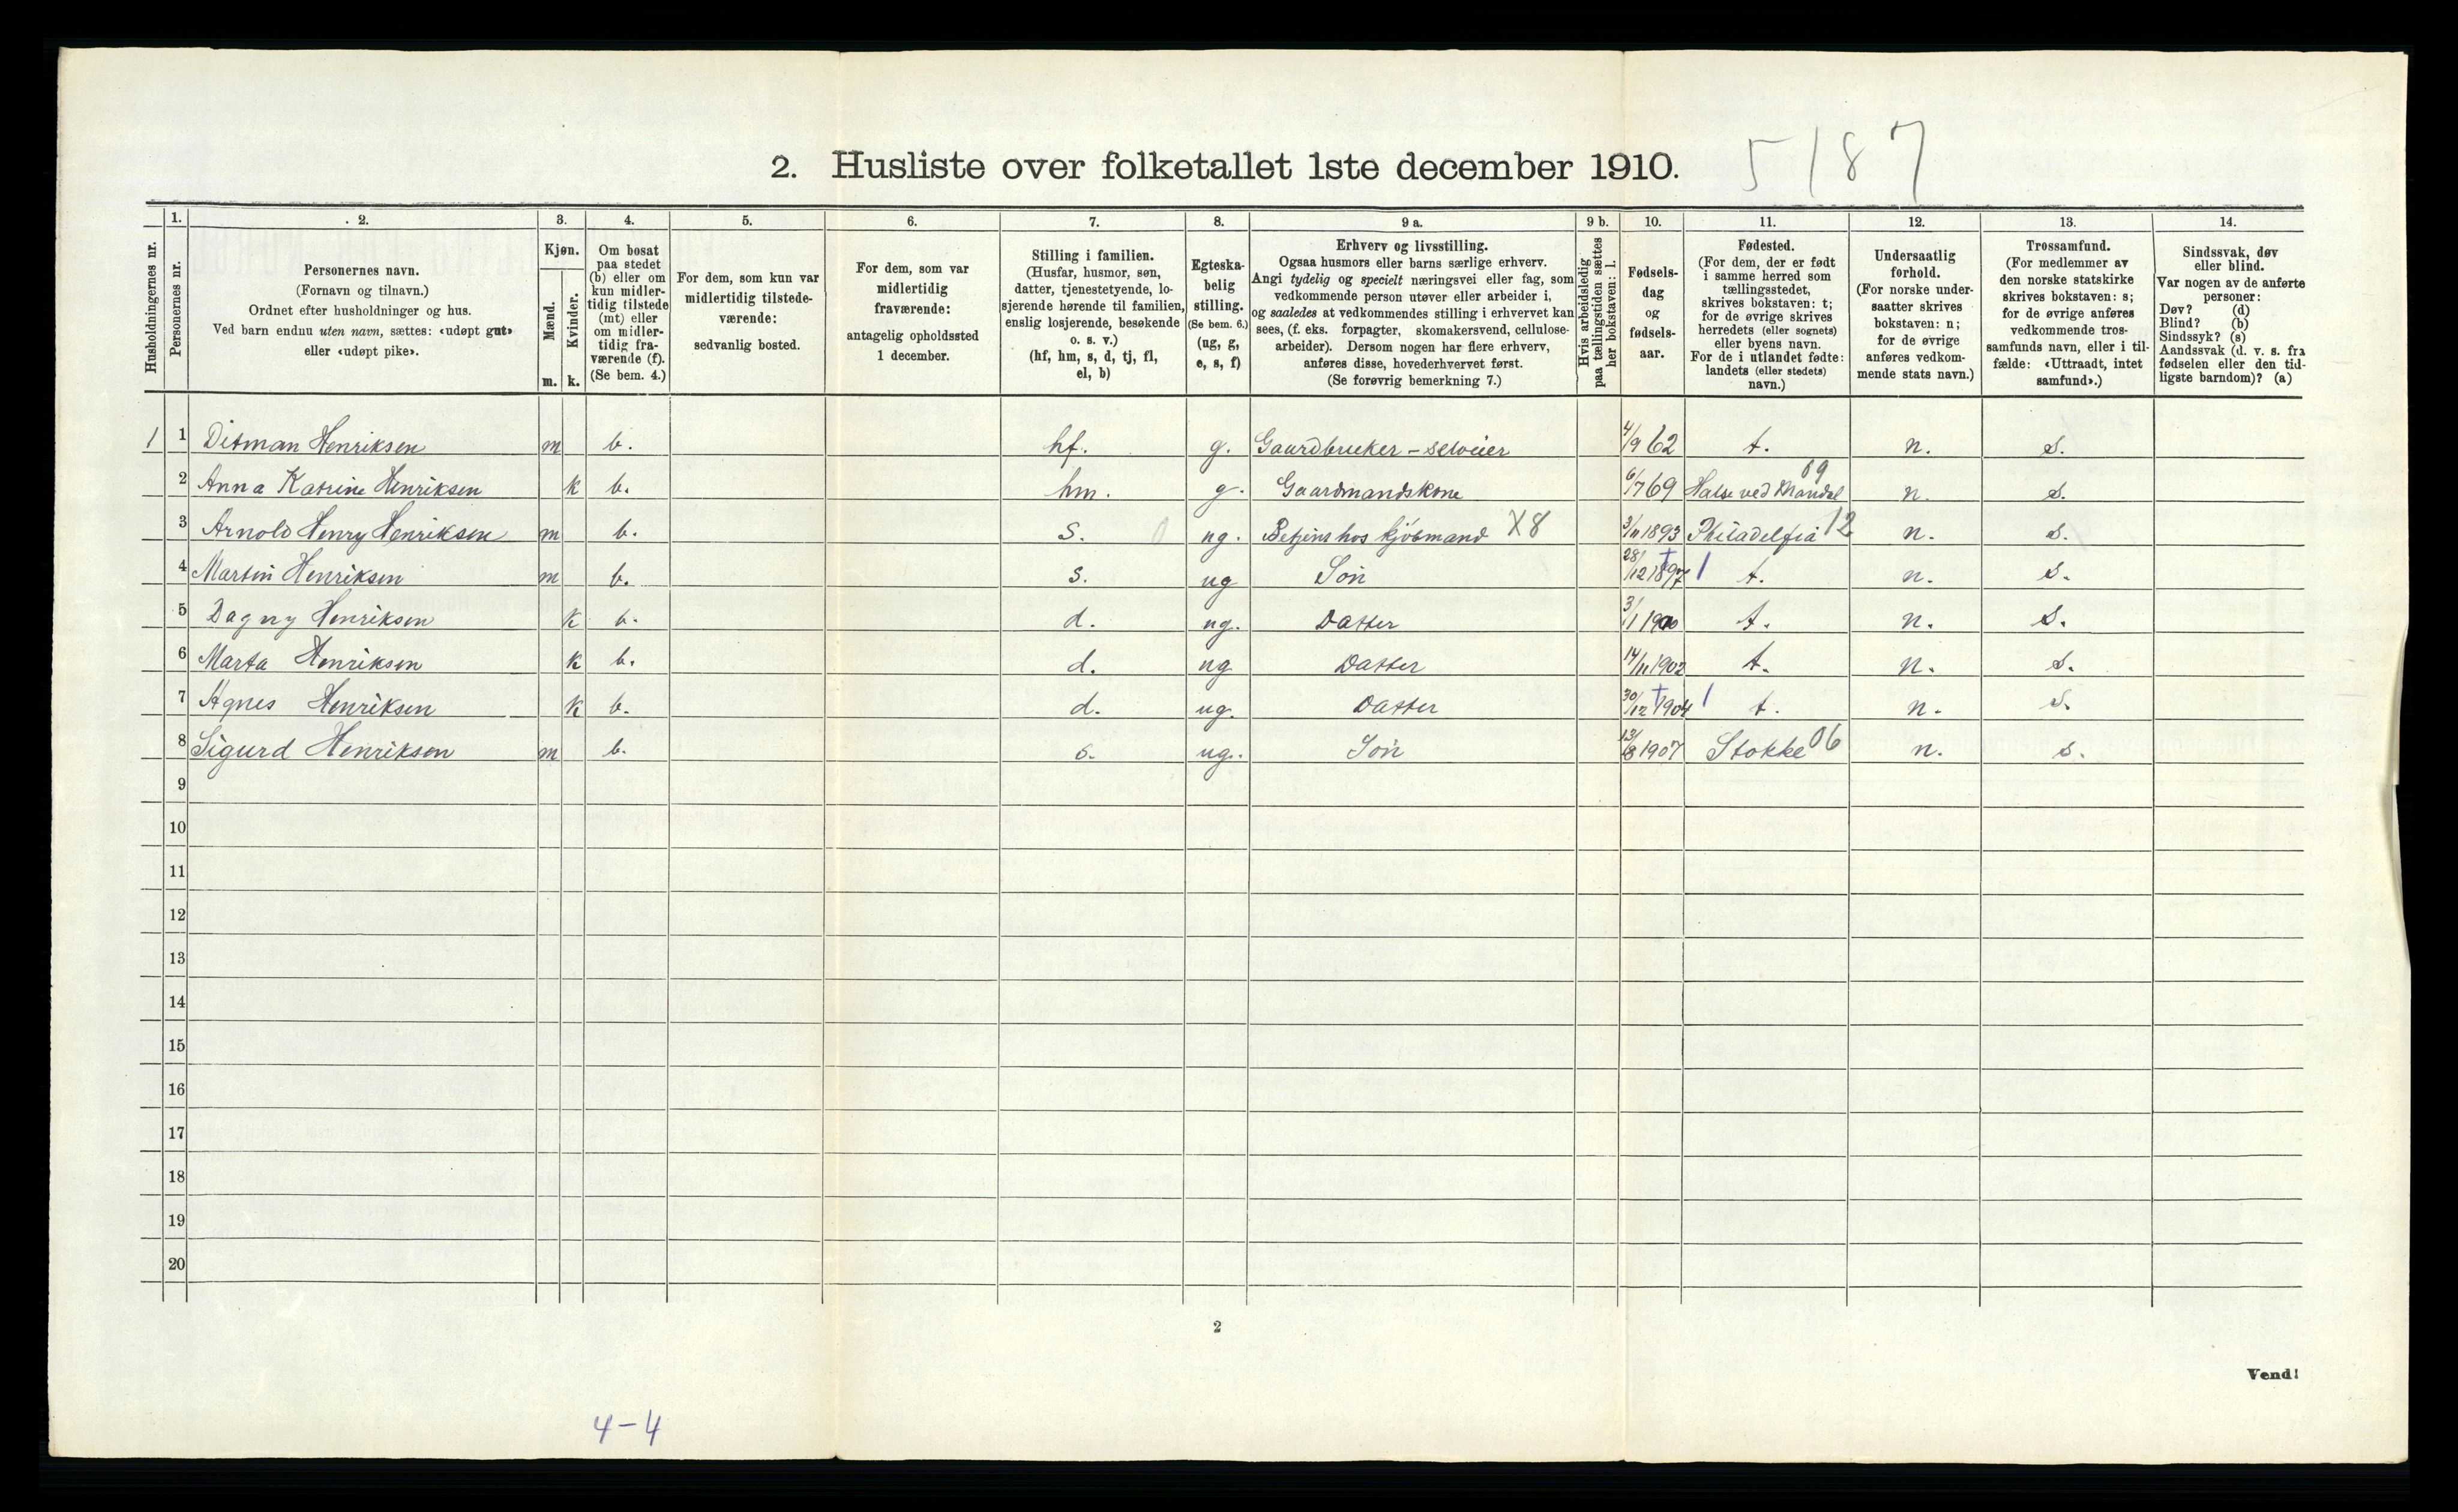 2. Husliste over folketallet 1ste december 1910.
5187
Husholdningernes nr.
1. Personernes nr.
2. Personernes navn.
(Fornavn og tilnavn.)
Ordnet efter husholdninger og hus.
Ved barn endnu uten navn, sættes: «udøpt gut»
eller «udøpt pike».
3. Kjøn.
Mænd. m.
Kvinder. k.
4. Om bosat
paa stedet
(b) eller om
kun midler-
tidig tilstede
(mt) eller
om midler-
tidig fra-
værende (f).
(Se bem. 4.)
5. For dem, som kun var
midlertidig tilstede-
værende:
sedvanlig bosted.
6. For dem, som var
midlertidig
fraværende:
antagelig opholdssted
1 december.
7. Stilling i familien.
(Husfar, husmor, søn,
datter, tjenestetyende, lo-
sjerende hørende til familien,
enslig losjerende, besøkende
o. s. v.)
(hf, hm, s, d, tj, fl,
el, b)
8. Egteska-
belig
stilling.
(Se bem. 6.)
(ug, g,
e, s, f)
9 a. Erhverv og livsstilling.
Ogsaa husmors eller barns særlige erhverv.
Angi tydelig og specielt næringsvei eller fag, som
vedkommende person utøver eller arbeider i,
og saaledes at vedkommendes stilling i erhvervet kan
sees, (f. eks. forpagter, skomakersvend, cellulose-
arbeider). Dersom nogen har flere erhverv,
anføres disse, hovederhvervet først.
(Se forøvrig bemerkning 7.)
9 b. Hvis arbeidsledig
paa tællingstiden sættes
her bokstaven: l.
10. Fødsels-
dag
og
fødsels-
aar.
11. Fødested.
(For dem, der er født
i samme herred som
tællingsstedet,
skrives bokstaven: t;
for de øvrige skrives
herredets (eller sognets)
eller byens navn.
For de i utlandet fødte:
landets (eller stedets)
navn.)
12. Undersaatlig
forhold.
(For norske under-
saatter skrives
bokstaven: n;
for de øvrige
anføres vedkom-
mende stats navn.)
13. Trossamfund.
(For medlemmer av
den norske statskirke
skrives bokstaven: s;
for de øvrige anføres
vedkommende tros-
samfunds navn, eller i til-
fælde: «Uttraadt, intet
samfund».)
14. Sindssvak, døv
eller blind.
Var nogen av de anførte
personer:
Døv? (d)
Blind? (b)
Sindssyk? (s)
Aandssvak (d. v. s. fra
fødselen eller den tid-
ligste barndom)? (a)
1 1 Ditman Henriksen m b. hf. g. Gaardbruker - selveier 4/9 62 t. n. s.
2 Anna Katrine Henriksen k b. hm. g. Gaardmandskone 6/7 69 Halse ved Mandal 09 n. s.
3 Arnold Henry Henriksen m b. s. 0 ug. Betjent hos kjöbmand X8 3/11 1893 Philadelfia 12 n. s.
4 Martin Henriksen m b. s. ug Sön 28/12 1897 t. n. s.
5 Dagny Henriksen k b. d. ug. Datter 3/1 1900 t. n. s.
6 Marta Henriksen k b. d. ug Datter 14/11 1902 t. n. s.
7 Agnes Henriksen k b. d. ug. Datter 30/12 1904 t. n. s.
8 Sigurd Henriksen m b. s. ug. Sön 13/8 1907 Stokke 06 n. s.
9
10
11
12
13
14
15
16
17
18
19
20
2
Vend!
4-4